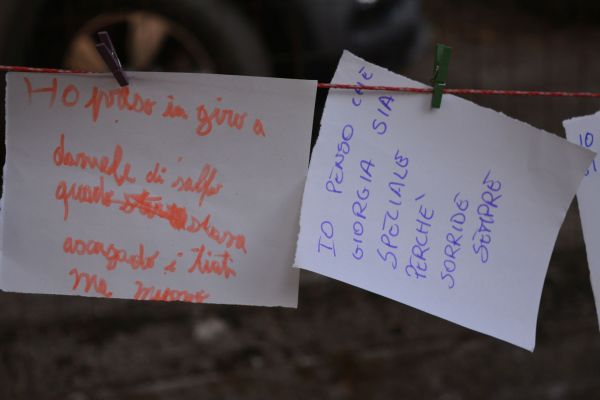 Ho preso in giro a
daniele di salfo
quado stava
ascugado i tiati
Ma
IO PENSO CHE
GIORGIA SIA
SPECIALE
PERCHÈ
SORRIDE
SEMPRE